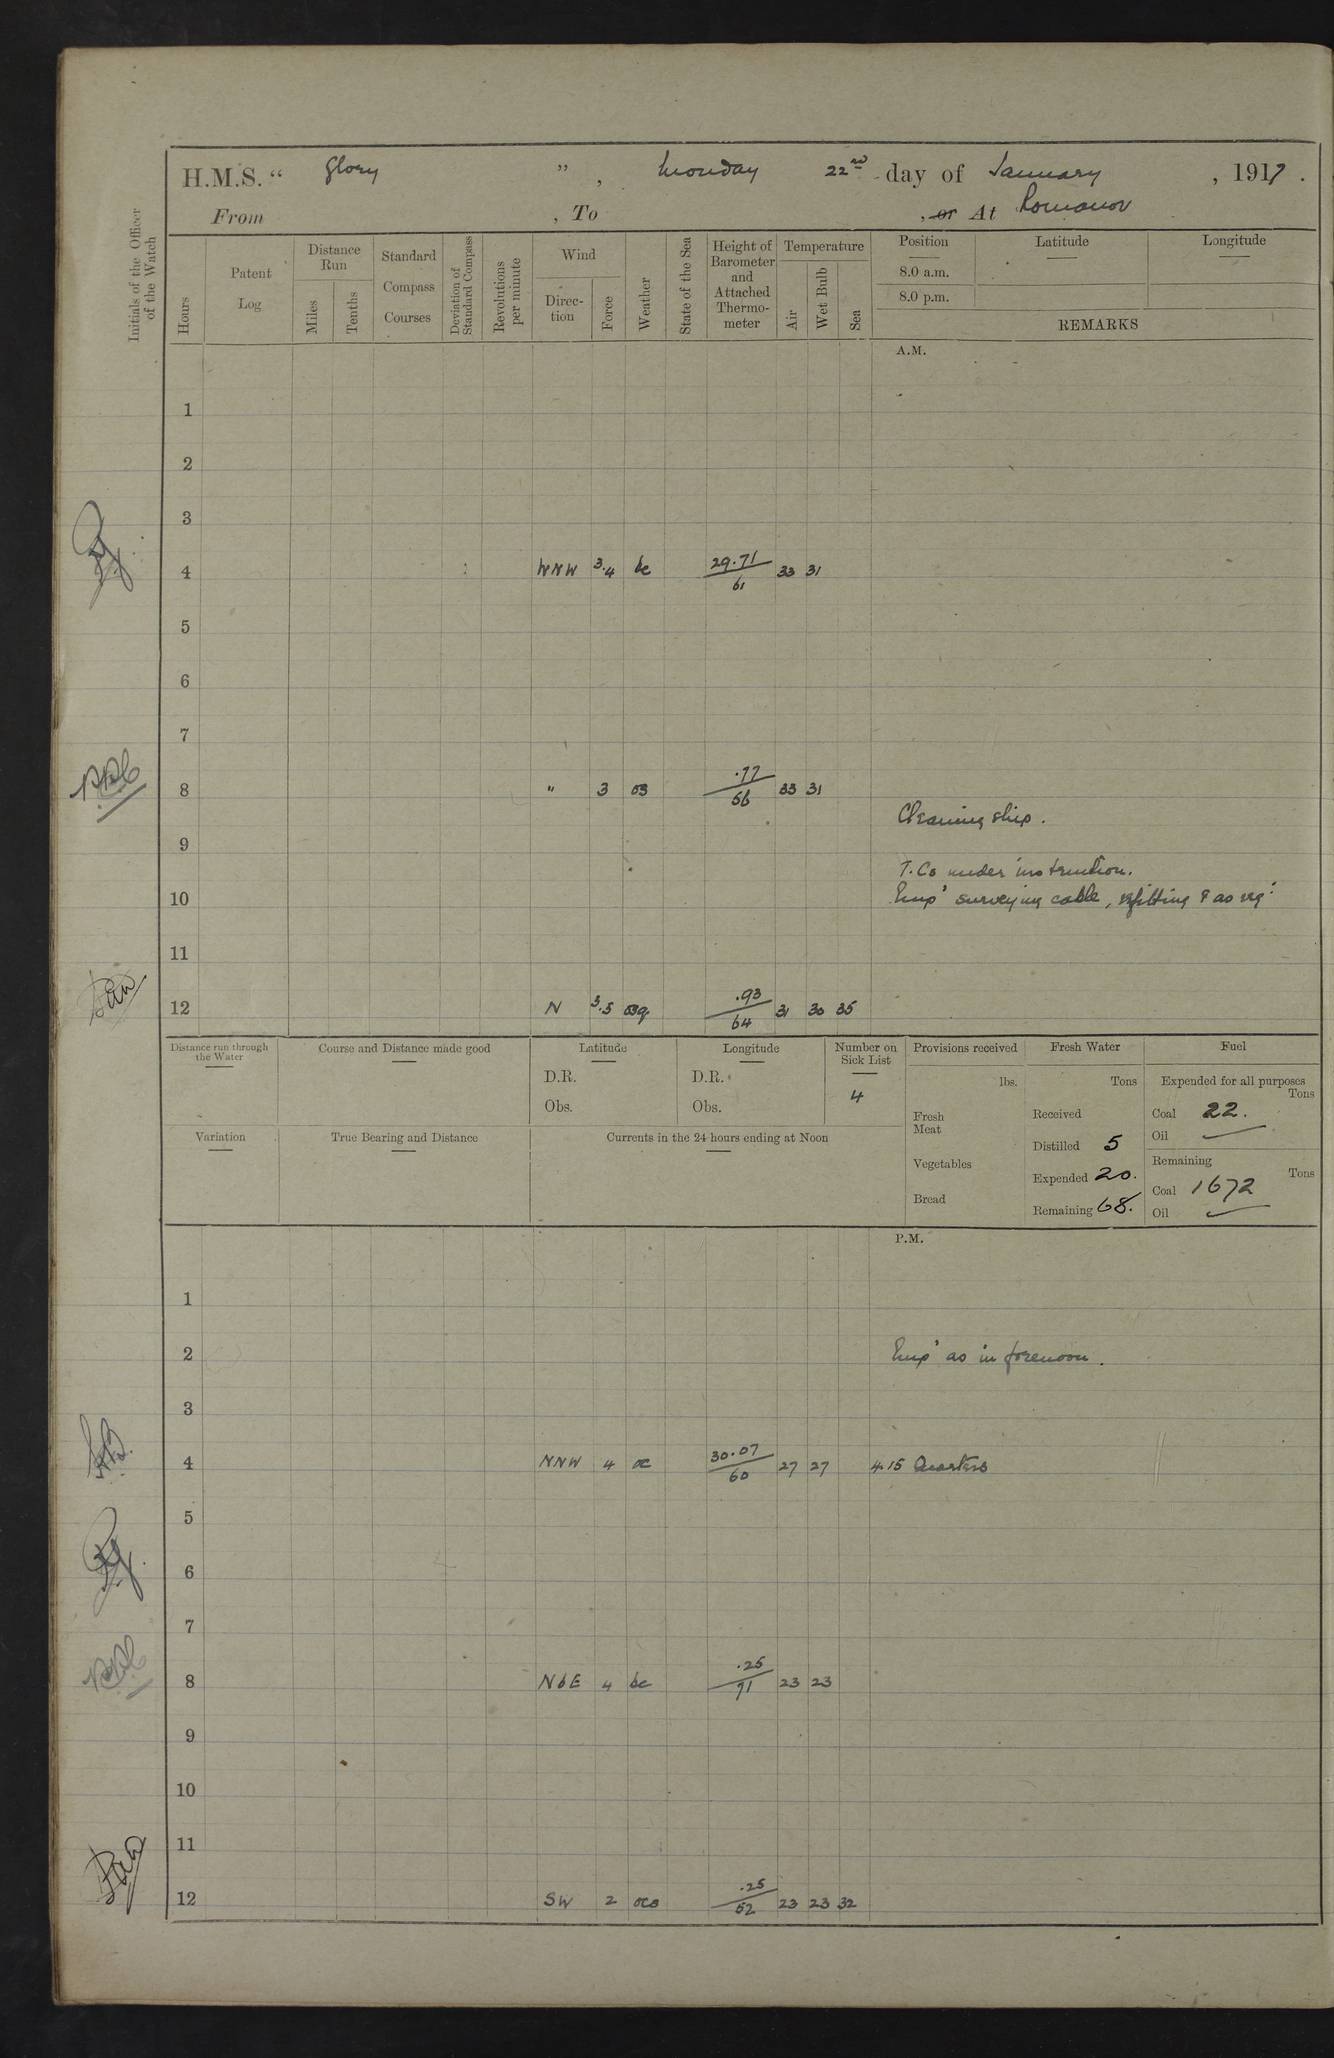 H.M.S. “ Glory ” , Monday 22nd day of January , 1917 .
From , To , or At Romanov
Initials of the Officer of the Watch
Hours
Patent Log
Distance Run
Miles
Tenths
Standard Compass Courses
Deviation of Standard Compass
Revolutions per minute
Wind
Direction
Force
Weather
State of the Sea
Height of Barometer and Attached Thermometer
Temperature
Air
Wet Bulb
Sea
Position
8.0 a.m.
8.0 p.m.
Latitude
Longitude
REMARKS
A.M.
1
2
3
4 WNW 3.4 bc 29.71 61 33 31
5
6
7
8 " 3 os .77 56 33 31
Cleaning ship.
9
T.Cs under instruction.
10 Emp' surveying cable, refitting & as req:
11
12 N 3.5 osq .93 64 31 30 35
Distance run through the Water
Course and Distance made good
Latitude
D.R.
Obs.
Longitude
D.R.
Obs.
Number on Sick List
4
Provisions received
lbs.
Fresh Meat
Vegetables
Bread
Fresh Water
Tons
Received
Distilled 5
Expended 20.
Remaining 68.
Fuel
Expended for all purposes
Tons
Coal 22.
Oil
Remaining
Tons
Coal 1672
Oil
Variation
True Bearing and Distance
Currents in the 24 hours ending at Noon
P.M.
1
2 Emp' as in forenoon.
3
4 NNW 4 oc 30.07 60 27 27 4.15 Quarters
5
6
7
8 NbE 4 bc .25 71 23 23
9
10
11
12 SW 2 ocs .25 52 23 23 32